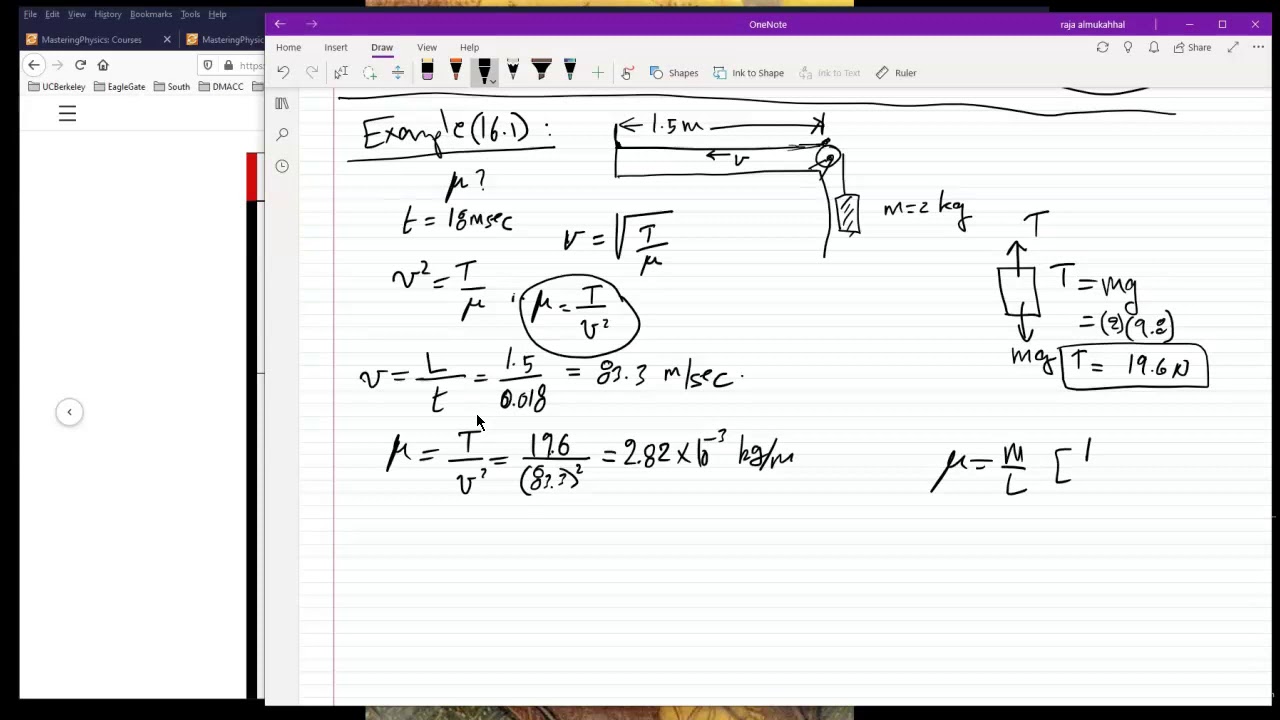 File Edit View History Bookmarks Tools Help
MasteringPhysics: Courses
MasteringPhysic
https:
UCBerkeley EagleGate South DMACC
OneNote
raja almukahhal
Home Insert Draw View Help
Share
Shapes Ink to Shape Ink to Text Ruler
Example (16.1) :
1.5 m
v
μ ?
t = 18 msec
m = 2 kg
v = √(T/μ)
v² = T/μ
μ = T/v²
T
T = mg
= (2)(9.8)
mg
T = 19.6 N
v = L/t = 1.5/0.018 = 83.3 m/sec.
μ = T/v² = 19.6/(83.3)² = 2.82 × 10⁻³ kg/m
μ = m/L [